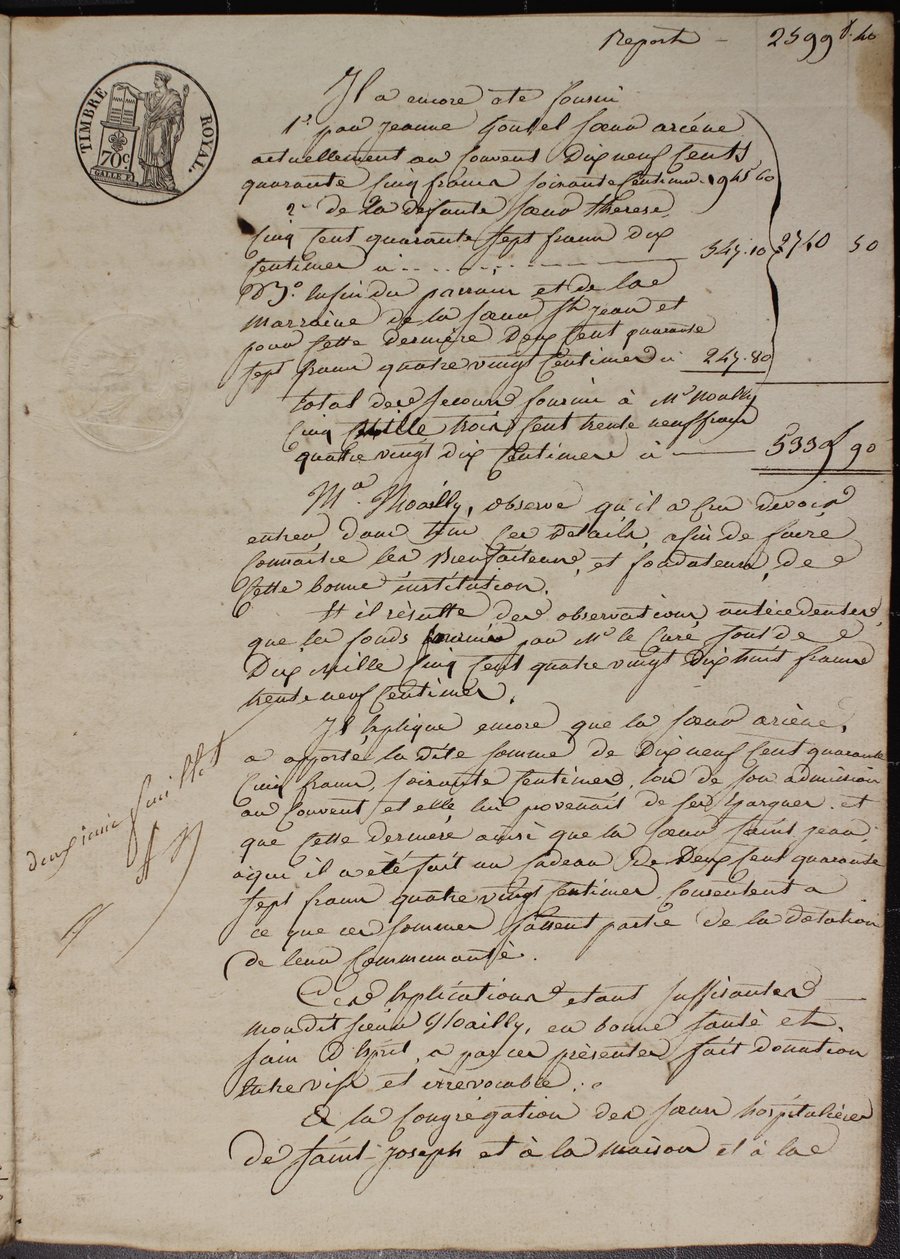 Report – 2599 f. 40
TIMBRE ROYAL.
70 c.
Il a encore été fourni
1° par Jeanne soeur arsène
actuellement au Couvent Dix neuf Cents
quarante Cinq francs soixante Centimes. 1945 60
2° de La défunte soeur thérèse,
Cinq Cent quarante sept francs dix
Centimes à 547.10 2740 50
3° Enfin du parrain et de la
Marraine de la soeur St Jean et
pour Cette dernière Deux Cent quarante
sept francs quatre vingt Centimes à 247.80
total des secours fournis à Mr Noailly
Cinq Mille trois Cent trente neuf francs
quatre vingt dix Centimes à 5339 f 90
Mr Noailly, observe qu'il a Cru devoir
entrer dans tous Ces Détails, afin de faire
Connaître les Bienfaiteurs, et fondateurs, de
Cette bonne institution.
Et il résulte des observations antécédentes,
que les fonds fournis par Mr le Curé, sont de
Dix Mille Cinq Cent quatre vingt Dix huit francs
trente neuf Centimes.
Il Explique encore que la soeur arsène,
a apporté la Dite somme de Dix neuf Cent quarante
Cinq francs, soixante Centimes, lors de son admission
au Couvent et elle lui provenait de ses Epargnes. et
que Cette dernière ainsi que la soeur Saint Jean,
à qui il a été fait un Cadeau De Deux Cent quarante
sept francs quatre vingt Centimes Consentent a
ce que ces sommes fassent partie de la dotation
de leur Communauté.
deuxième feuillet
Ces Explications étant suffisantes
mondit sieur Noailly, en bonne santé et
sain D'Esprit, a par ces présentes fait donation
Entre vifs et irrévocable.
A la Congrégation des soeurs hospitalières
de Saint-Joseph et à la maison et à la